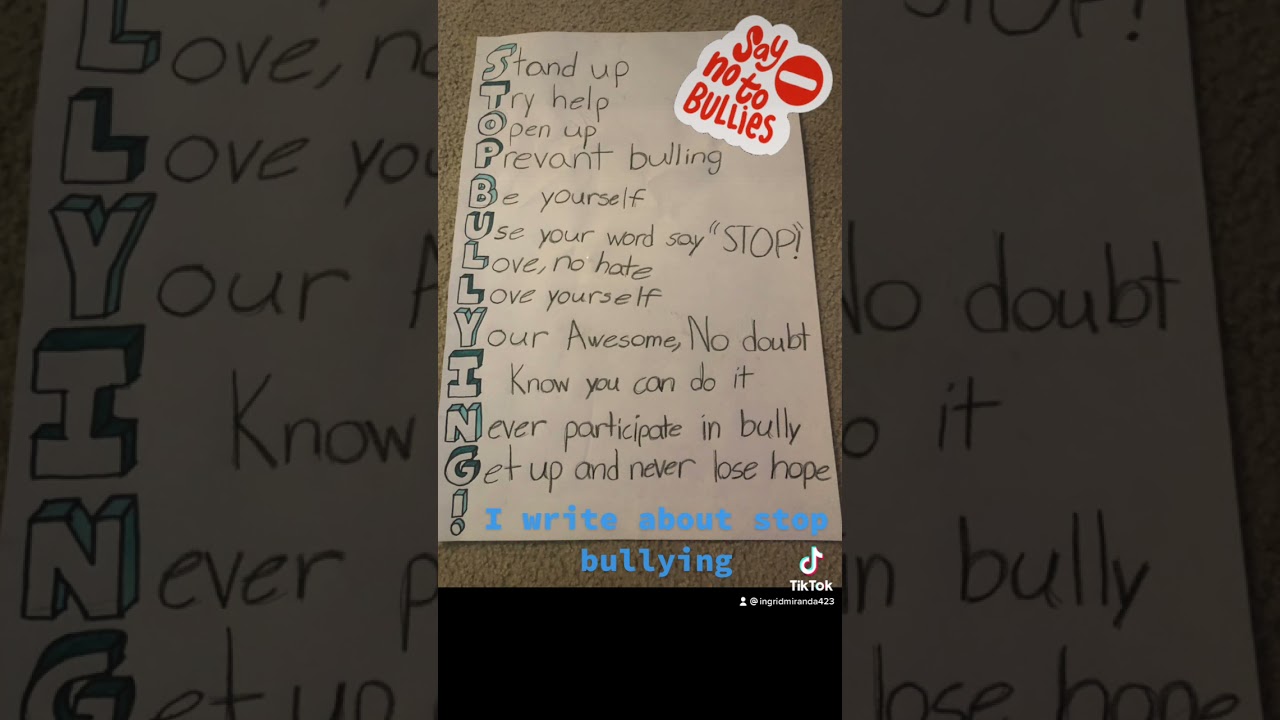 Stand up
Try help
Open up
Prevant bulling
Be yourself
Use your word say "STOP!"
Love, no hate
Love yourself
Your Awesome, No doubt
I Know you can do it
Never participate in bully
Get up and never lose hope
!
Say
no to
BULLies
I write about stop
bullying
TikTok
@ingridmiranda423